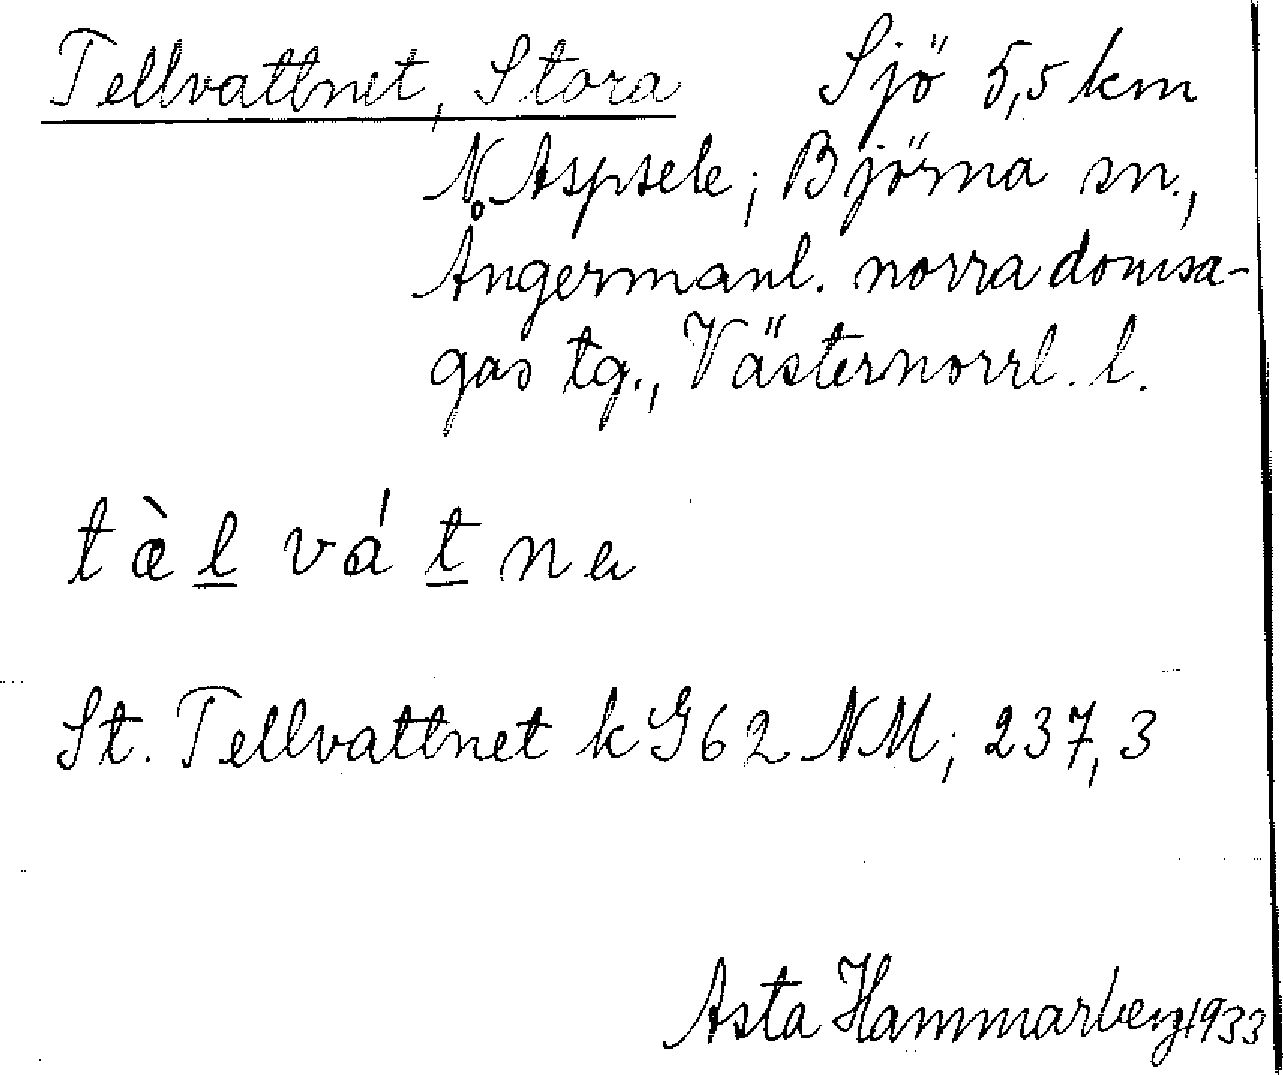 Tellvattnet, Stora Sjö 5,5 km
N. Aspsele; Björna sn.,
Ångermanl. norra domsa-
gas tg., Västernorrl. l.
tæ̀l vát ne
St. Tellvattnet k G62 NM; 237,3
Asta Hammarberg 1933